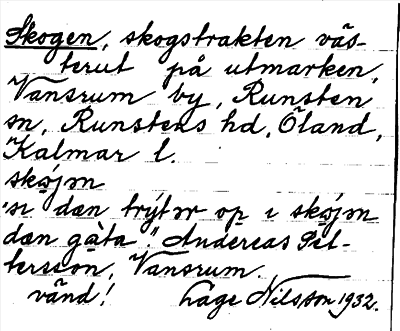 Skogen, skogstrakten väs-
terut på utmarken,
Vansrum by, Runsten
sn, Runstens hd, Öland,
Kalmar l.
skøjən
"si dan trýtər op i skøjən
dan gàta". Andreas Pet-
tersson, Vansrum.
vänd! Lage Nilsson 1932.